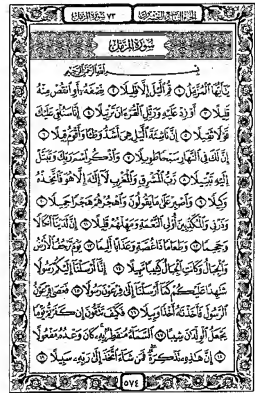 الجزء التاسع والعشرون سورة المزمل ٧٣
سورة المزمل
بسم الله الرحمن الرحيم
يَٰٓأَيُّهَا ٱلْمُزَّمِّلُ ١ قُمِ ٱلَّيْلَ إِلَّا قَلِيلًا ٢ نِّصْفَهُۥٓ أَوِ ٱنقُصْ مِنْهُ
قَلِيلًا ٣ أَوْ زِدْ عَلَيْهِ وَرَتِّلِ ٱلْقُرْءَانَ تَرْتِيلًا ٤ إِنَّا سَنُلْقِى عَلَيْكَ
قَوْلًا ثَقِيلًا ٥ إِنَّ نَاشِئَةَ ٱلَّيْلِ هِىَ أَشَدُّ وَطْـًٔا وَأَقْوَمُ قِيلًا ٦
إِنَّ لَكَ فِى ٱلنَّهَارِ سَبْحًا طَوِيلًا ٧ وَٱذْكُرِ ٱسْمَ رَبِّكَ وَتَبَتَّلْ
إِلَيْهِ تَبْتِيلًا ٨ رَّبُّ ٱلْمَشْرِقِ وَٱلْمَغْرِبِ لَآ إِلَٰهَ إِلَّا هُوَ فَٱتَّخِذْهُ
وَكِيلًا ٩ وَٱصْبِرْ عَلَىٰ مَا يَقُولُونَ وَٱهْجُرْهُمْ هَجْرًا جَمِيلًا ١٠
وَذَرْنِى وَٱلْمُكَذِّبِينَ أُو۟لِى ٱلنَّعْمَةِ وَمَهِّلْهُمْ قَلِيلًا ١١ إِنَّ لَدَيْنَآ أَنكَالًا
وَجَحِيمًا ١٢ وَطَعَامًا ذَا غُصَّةٍ وَعَذَابًا أَلِيمًا ١٣ يَوْمَ تَرْجُفُ ٱلْأَرْضُ
وَٱلْجِبَالُ وَكَانَتِ ٱلْجِبَالُ كَثِيبًا مَّهِيلًا ١٤ إِنَّآ أَرْسَلْنَآ إِلَيْكُمْ رَسُولًا
شَٰهِدًا عَلَيْكُمْ كَمَآ أَرْسَلْنَآ إِلَىٰ فِرْعَوْنَ رَسُولًا ١٥ فَعَصَىٰ فِرْعَوْنُ
ٱلرَّسُولَ فَأَخَذْنَٰهُ أَخْذًا وَبِيلًا ١٦ فَكَيْفَ تَتَّقُونَ إِن كَفَرْتُمْ يَوْمًا
يَجْعَلُ ٱلْوِلْدَٰنَ شِيبًا ١٧ ٱلسَّمَآءُ مُنفَطِرٌۢ بِهِۦ كَانَ وَعْدُهُۥ مَفْعُولًا
١٨ إِنَّ هَٰذِهِۦ تَذْكِرَةٌ فَمَن شَآءَ ٱتَّخَذَ إِلَىٰ رَبِّهِۦ سَبِيلًا ١٩
٥٧٤